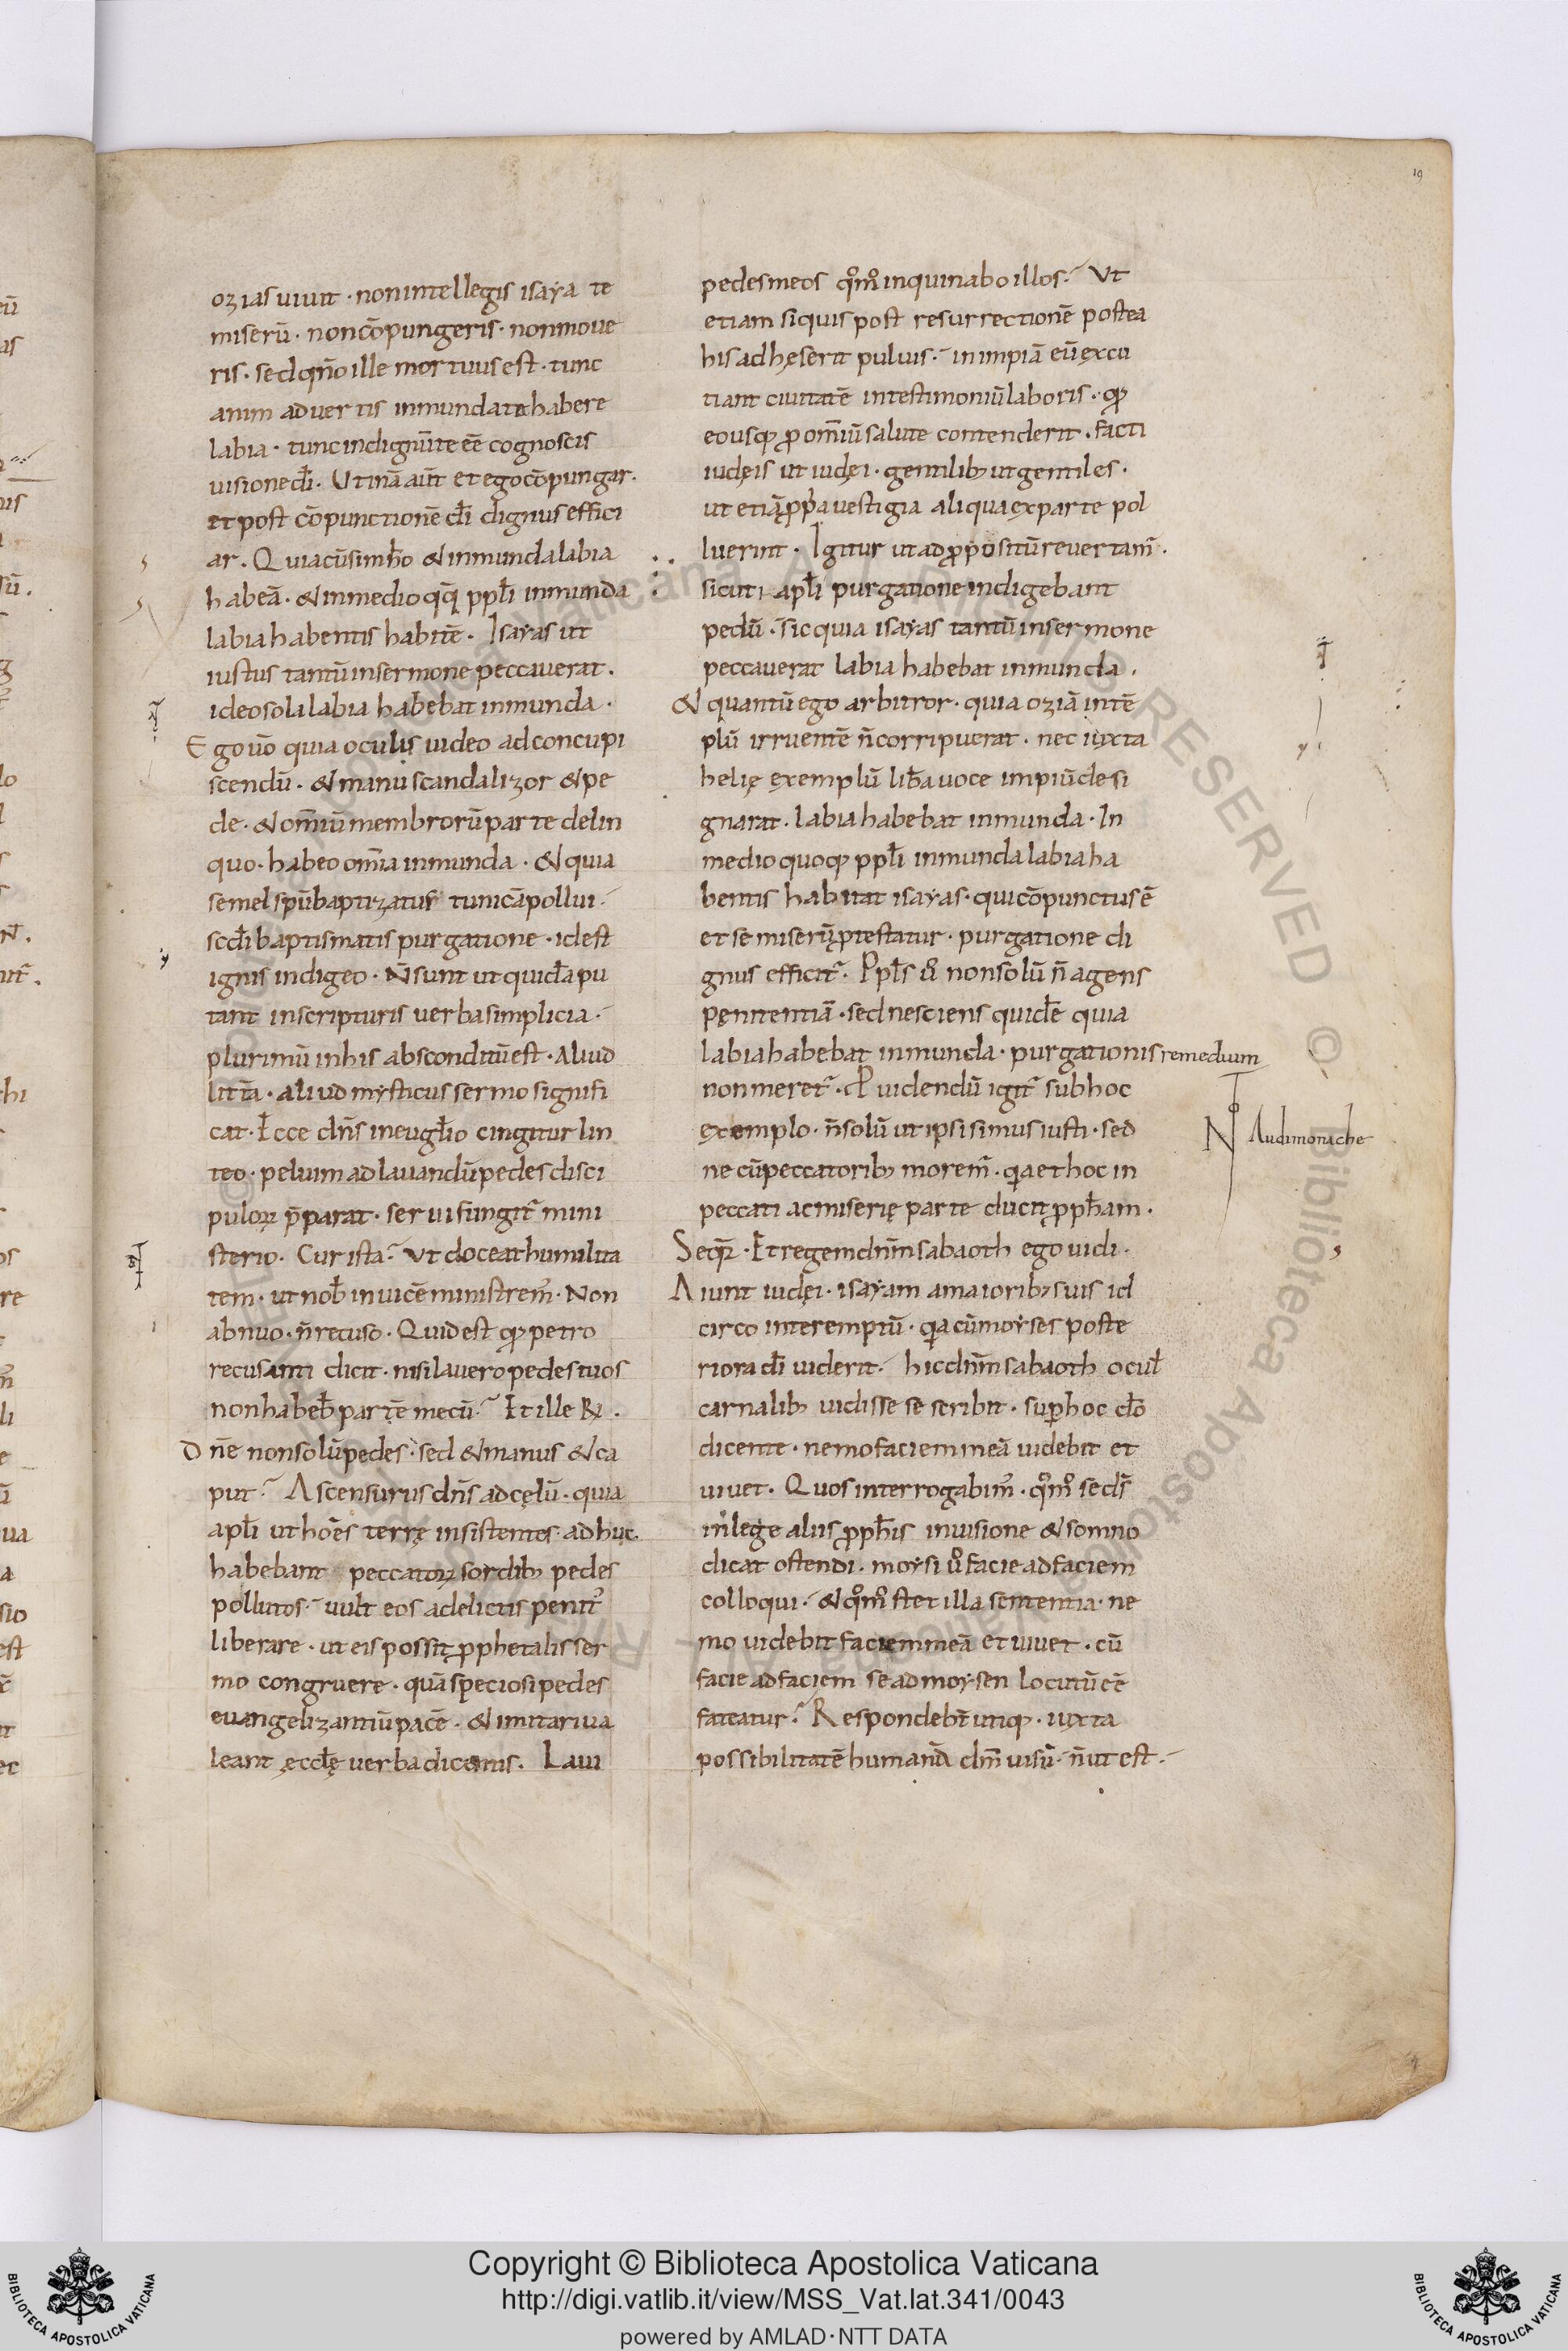 19
ozias uiuit · non intellegis isaya te
miserū · non cōpungeris · non moue
ris · sed qn̄o ille mortuus est · tunc
anim aduertis inmunda te habere
labia · tunc indignū te eē cognoscis
uisione dī · Utinā aūt et ego cōpungar ·
et post cōpunctionē dī dignus effici
ar · Quia cū sim hō & inmunda labia
habeā · & in medio qq̄ ppłi inmunda
labia habentis habitē · Isayas ut
iustus tantū in sermone peccauerat ·
ideo sola labia habebat inmunda ·
Ego ūo quia oculis uideo ad concupi
scendū · & manu scandalizor & pe
de · & om̄iū membrorū parte delin
quo · habeo om̄ia inmunda · & quia
semel spū baptizatus tunicā pollui
scd̄i baptismatis purgatione · id est
ignis indigeo · N̄ sunt ut quidā pu
tant in scripturis uerba simplicia ·
plurimū in his absconditū est · Aliud
littā · aliud mysticus sermo signifi
cat · Ecce dn̄s in eugłio cingitur lin
teo · peluim ad lauandū pedes disci
puloꝝ p̄parat · serui fungit᷑ mini
sterio · Cur ista? Ut doceat humilita
tem · ut nob̄ inuicē ministrem᷑ · Non
abnuo · n̄ recuso · Quid est qđ petro
recusanti dicit · nisi lauero pedes tuos
non habeb̄ partē mecū? Et ille ꝶ ·
Dn̄e non solū pedes · sed & manus & ca
put? Ascensurus dn̄s ad cęlū · quia
apłi ut hoēs terrę insistentes · adhuc
habebant peccatoꝝ sordibꝫ pedes
pollutos · uult eos a delictis penit᷒
liberare · ut eis possit ꝓphetalis ser
mo congruere · quā speciosi pedes
euangelizantiū pacē · & imitari ua
leant ęccłę uerba dicentis · Laui
pedes meos qm̊ inquinabo illos? Ut
etiam si quis post resurrectionē postea
his adhęserit puluis · in impiā eū excu
tiant ciuitatē in testimoniū laboris · qđ
eousqꝫ ꝓ om̄iū salute contenderit · facti
iudęis ut iudęi · gentilibꝫ ut gentiles ·
ut etiā ꝓpa uestigia aliqua ex parte pol
luerint · Igitur ut ad ꝓpositū reuertam᷑ ·
sicuti apłi purgatione indigebant
pedū · sic quia isayas tantū in sermone
peccauerat labia habebat inmunda ·
& quantū ego arbitror · quia oziā in tē
plū irruentē n̄ corripuerat · nec iuxta
helię exemplū lib̄a uoce impiū desi
gnarat · labia habebat inmunda · In
medio quoqꝫ ppłi inmunda labia ha
bentis habitat isayas · qui cōpunctus ē
et se miserū ꝓtestatur · purgatione di
gnus efficit᷑ · Ppłs ů non solū n̄ agens
penitentiā · sed nesciens quidē quia
labia habebat inmunda · purgationis remedium
non meret᷑ · P̄uidendū igit᷑ sub hoc
exemplo · n̄ solū ut ipsi simus iusti · sed
ne cū peccatoribꝫ morem᷑ · qa et hoc in
peccati ac miserię parte ducit ꝓpham ·
Seqr̄ · Et regem dn̄m sabaoth ego uidi ·
Aiunt iudęi · isayam a maioribꝫ suis id
circo interemptū · qa cū moyses poste
riora dī uiderit · hic dn̄m sabaoth ocuł
carnalibꝫ uidisse se scribit · sup hoc dō
dicente · nemo faciem meā uidebit et
uiuet · Quos interrogabim᷒ · qm̊ se ds̄
in lege aliis ꝓphis in uisione & somno
dicat ostendi · moysi ů facie ad faciem
colloqui · & qm̊ stet illa sententia · ne
mo uidebit faciem meā et uiuet · cū
facie ad faciem se ad moysen locutū eē
fateatur? Respondeb̄t utiqꝫ · iuxta
possibilitatē humanā dm̄ uisū · n̄ ut est ·
N̊ Audi monache
Copyright © Biblioteca Apostolica Vaticana
http://digi.vatlib.it/view/MSS_Vat.lat.341/0043
powered by AMLAD·NTT DATA
BIBLIOTECA APOSTOLICA VATICANA
BIBLIOTECA APOSTOLICA VATICANA